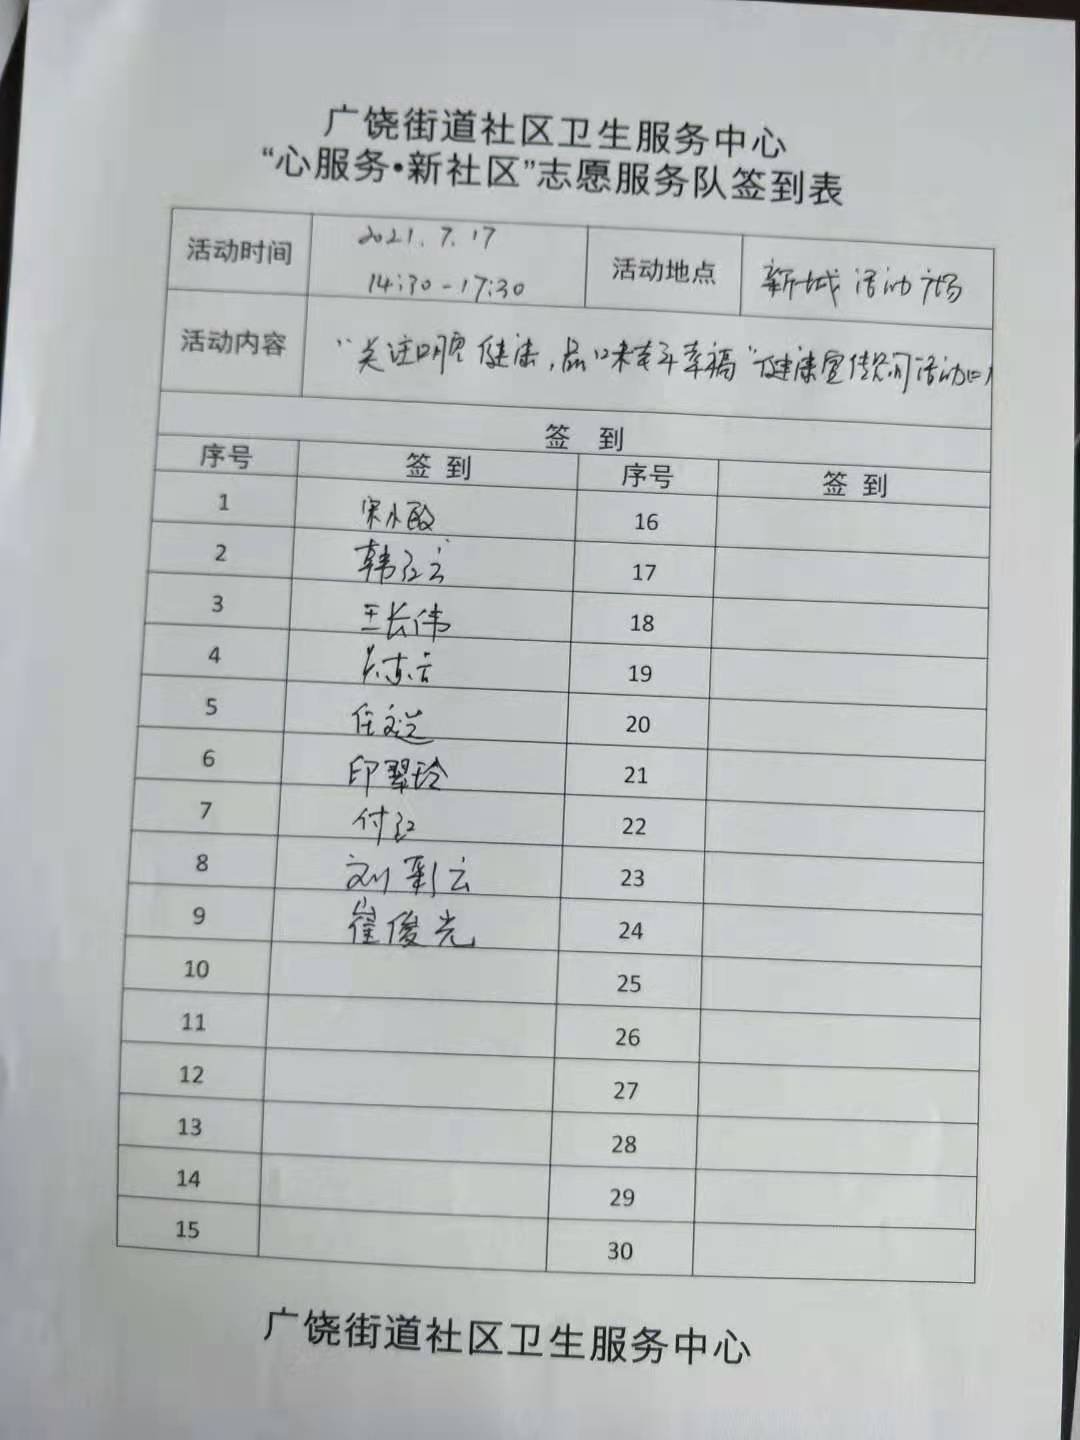 广饶街道社区卫生服务中心
“心服务•新社区”志愿服务队签到表
活动时间 2021.7.17 14:30-17:30 活动地点 新城活动广场
活动内容 “关注口腔健康,品味老年幸福”健康宣传义诊活动
签 到
序号 签 到 序号 签 到
1 宋小敏 16
2 韩红云 17
3 王长伟 18
4 19
5 任文兰 20
6 印翠玲 21
7 付红 22
8 刘彩云 23
9 崔俊光 24
10 25
11 26
12 27
13 28
14 29
15 30
广饶街道社区卫生服务中心